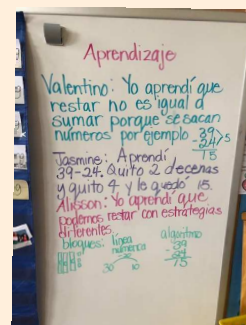 Aprendizaje
Valentino: Yo aprendí que
restar no es igual a
sumar porque se sacan
números por ejemplo - 39
24 > 5
15
Jasmine: Aprendí
39-24. Quito 2 decenas
y quito 4 y le quedó 15.
Alisson: Yo aprendí que
podemos restar con estrategias
diferentes.
bloques: línea numérica algoritmo
39
- 24
15